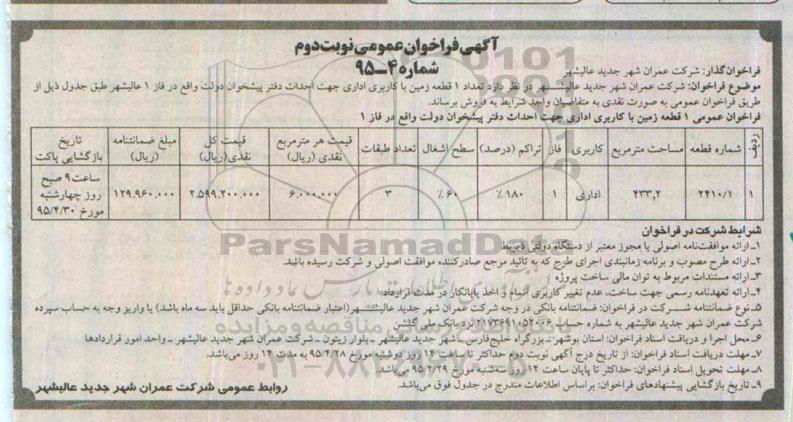 آگهی فراخوان عمومی نوبت دوم
شماره ۴ــ۹۵
فراخوان‌گذار: شرکت عمران شهر جدید عالیشهر
موضوع فراخوان: شرکت عمران شهر جدید عالیشهر در نظر دارد تعداد ۱ قطعه زمین با کاربری اداری جهت احداث دفتر پیشخوان دولت واقع در فاز ۱ عالیشهر طبق جدول ذیل از
طریق فراخوان عمومی به صورت نقدی به متقاضیان واجد شرایط به فروش برساند.
فراخوان عمومی ۱ قطعه زمین با کاربری اداری جهت احداث دفتر پیشخوان دولت واقع در فاز ۱
ردیف | شماره قطعه | مساحت مترمربع | کاربری | فاز | تراکم (درصد) | سطح اشغال | تعداد طبقات | قیمت هر مترمربع نقدی (ریال) | قیمت کل نقدی(ریال) | مبلغ ضمانتنامه (ریال) | تاریخ بازگشایی پاکت
۱ | ۲۴۱۰/۱ | ۴۳۳,۲ | اداری | ۱ | ۱۸۰ ٪ | ۶۰ ٪ | ۳ | ۶,۰۰۰,۰۰۰ | ۲,۵۹۹,۲۰۰,۰۰۰ | ۱۲۹,۹۶۰,۰۰۰ | ساعت ۹ صبح روز چهارشنبه مورخ ۹۵/۴/۳۰
شرایط شرکت در فراخوان
۱ـ ارائه موافقت‌نامه اصولی یا مجوز معتبر از دستگاه دولتی ذیربط
۲ـ ارائه طرح مصوب و برنامه زمانبندی اجرای طرح که به تائید مرجع صادرکننده موافقت اصولی و شرکت رسیده باشد.
۳ـ ارائه مستندات مربوط به توان مالی ساخت پروژه
۴ـ ارائه تعهدنامه رسمی جهت ساخت، عدم تغییر کاربری اتمام و اخذ پایانکار در مدت قرارداد
۵ـ نوع ضمانتنامه شرکت در فراخوان: ضمانتنامه بانکی در وجه شرکت عمران شهر جدید عالیشهر(اعتبار ضمانتنامه بانکی حداقل باید سه ماه باشد) یا واریز وجه به حساب سپرده
شرکت عمران شهر جدید عالیشهر به شماره حساب نزد بانک ملی گلشن
۶ـ محل اجرا و دریافت اسناد فراخوان: استان بوشهر ـ بزرگراه خلیج‌فارس ـ شهر جدید عالیشهر ـ بلوار زیتون ـ شرکت عمران شهر جدید عالیشهر ـ واحد امور قراردادها
۷ـ مهلت دریافت اسناد فراخوان: از تاریخ درج آگهی نوبت دوم حداکثر تا ساعت ۱۴ روز دوشنبه مورخ ۹۵/۴/۲۸ به مدت ۱۴ روز می‌باشد.
۸ـ مهلت تحویل اسناد فراخوان: حداکثر تا پایان ساعت ۱۴ روز سه‌شنبه مورخ ۹۵/۴/۲۹ می‌باشد
۹ـ تاریخ بازگشایی پیشنهادهای فراخوان: براساس اطلاعات مندرج در جدول فوق می‌باشد.
روابط عمومی شرکت عمران شهر جدید عالیشهر
ParsNamadData